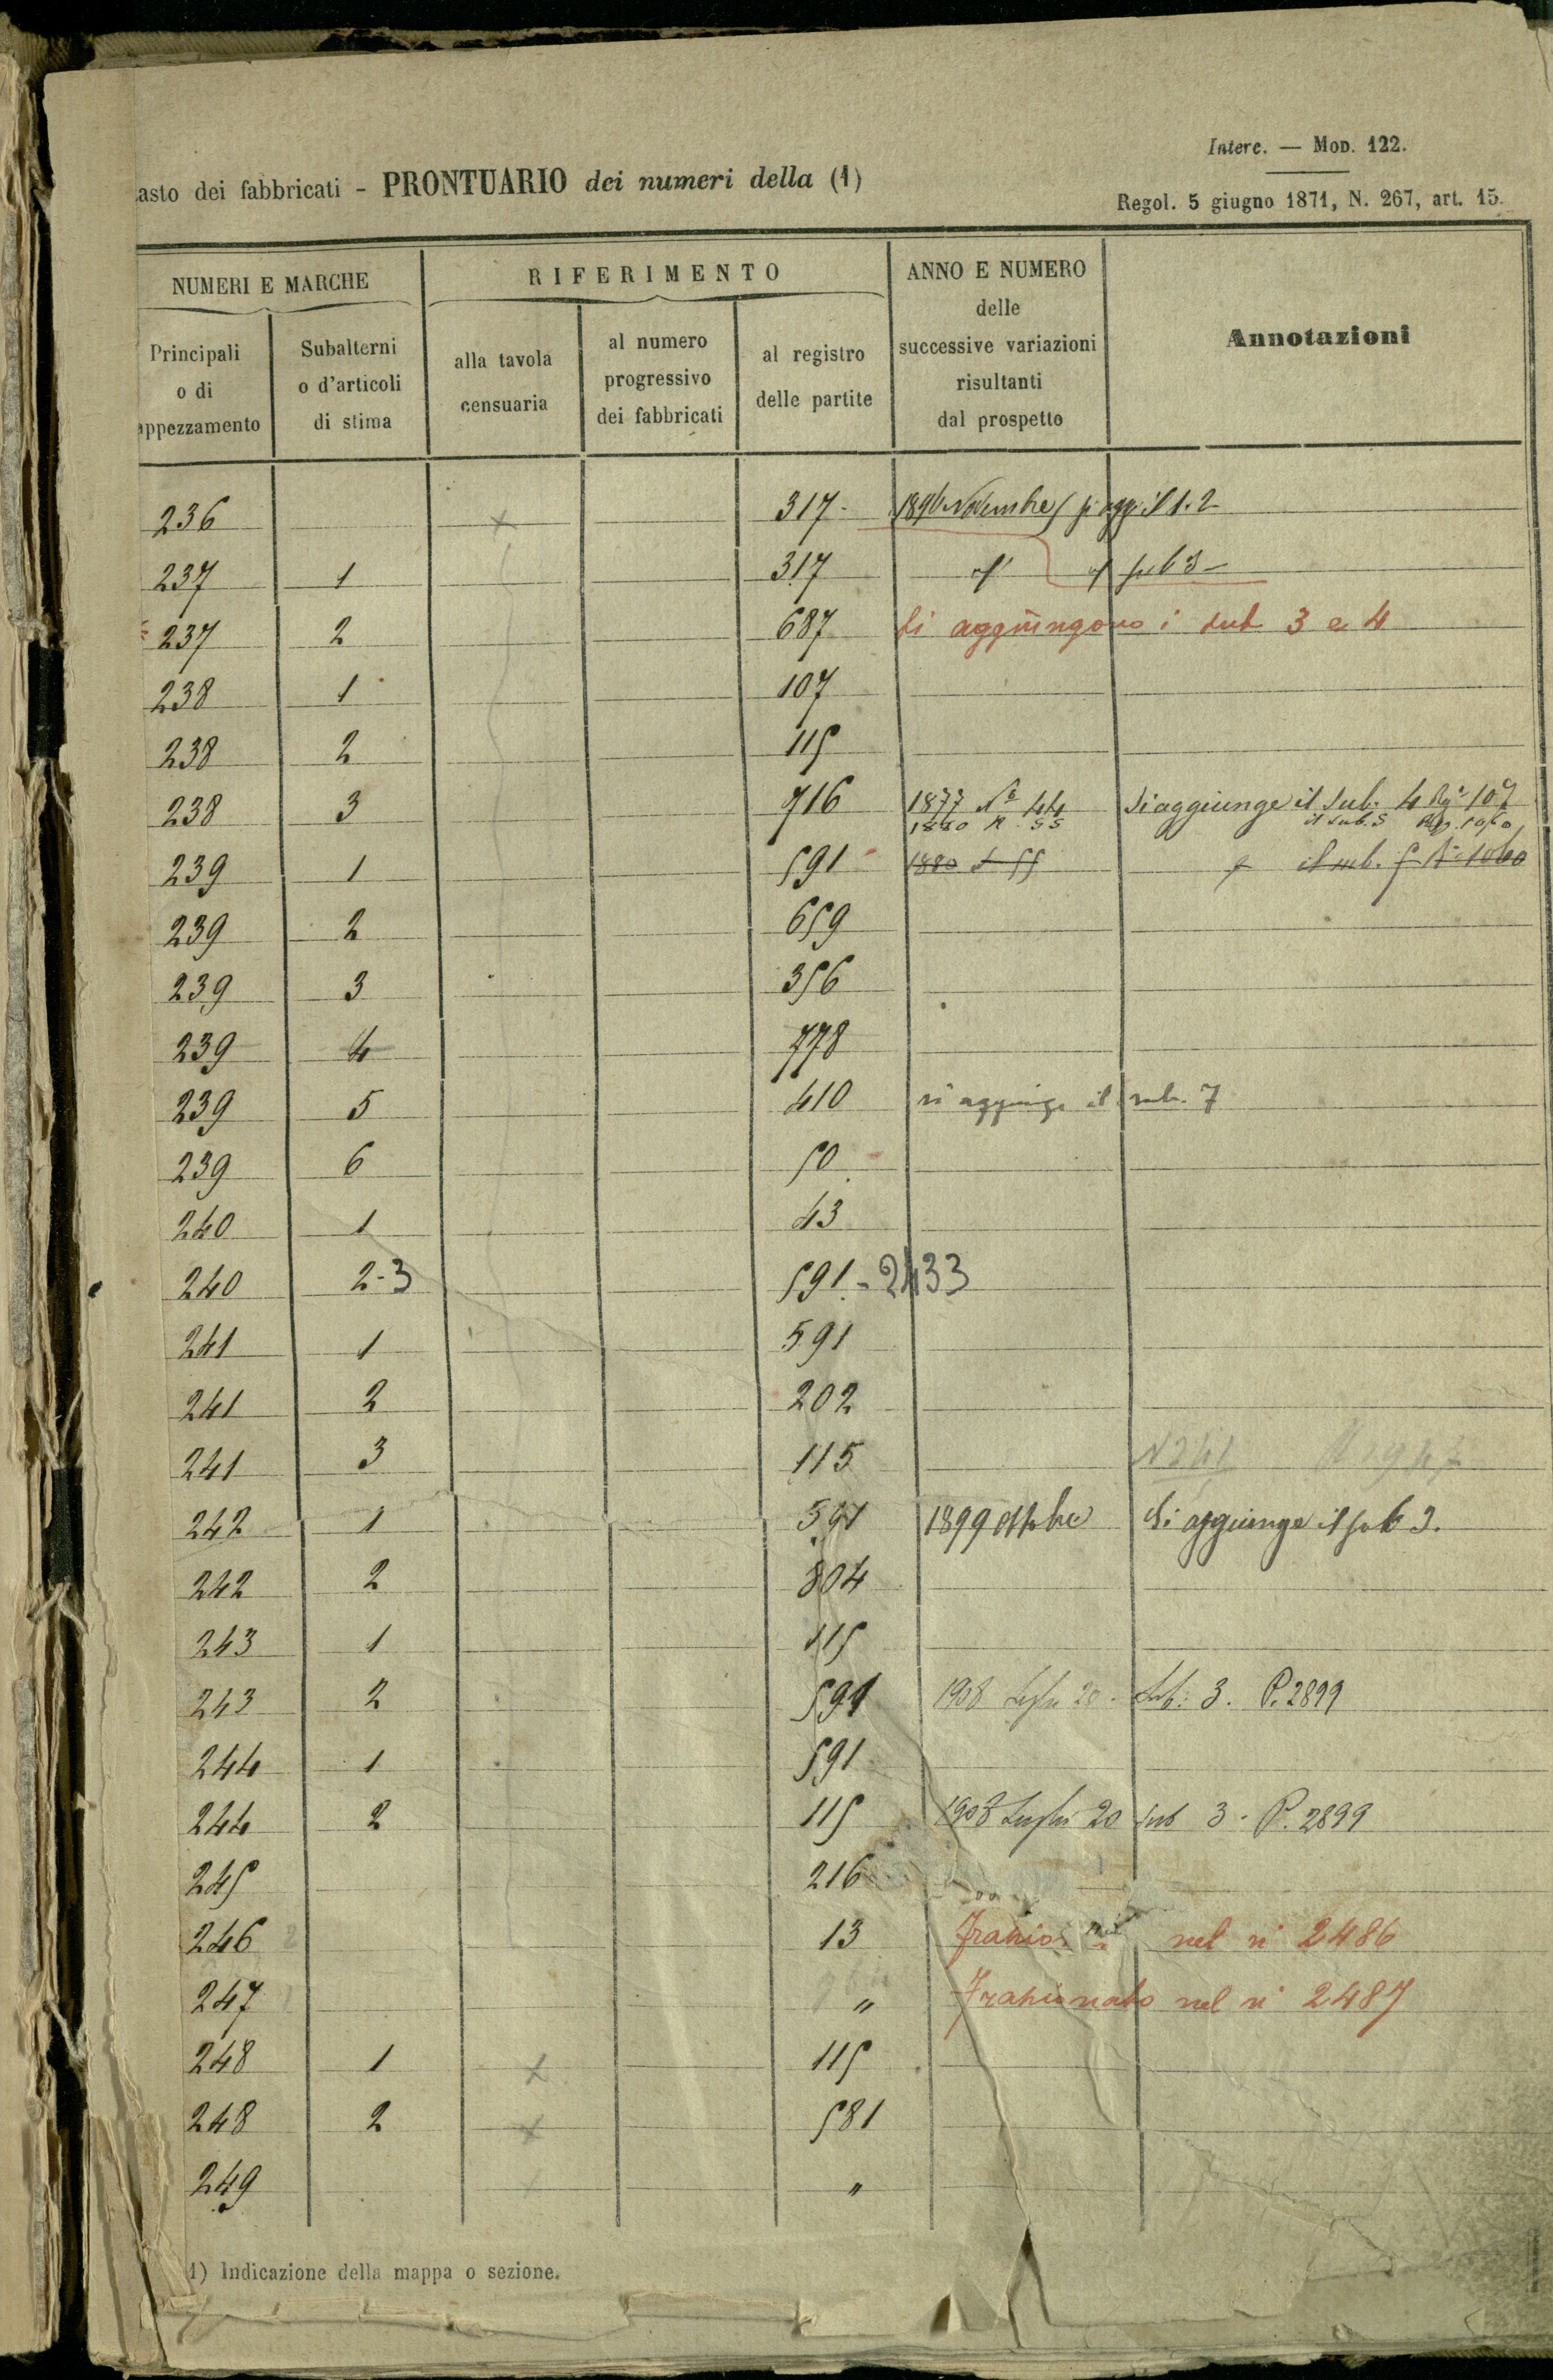 Interc. — Mod. 122.
asto dei fabbricati - PRONTUARIO dei numeri della (1)
Regol. 5 giugno 1871, N. 267, art. 15.
NUMERI E MARCHE
RIFERIMENTO
ANNO E NUMERO
delle
successive variazioni
risultanti
dal prospetto
Annotazioni
Principali
o di
appezzamento
Subalterni
o d'articoli
di stima
alla tavola
censuaria
al numero
progressivo
dei fabbricati
al registro
delle partite
236 317 Novembre si agg. il 1.2
237 1 317 sub 3
237 2 687 Si aggiungono i sub 3 e 4
238 1 107
238 2 115
238 3 716 1877 N° 44 Si aggiunge il sub. 4 Rg° 107
1880 N. 55 il sub. 5 Reg. 1060
239 1 591 1880 55 il sub. 5 1060
239 2 659
239 3 356
239 4 778
239 5 410 si aggiunge il sub. 7
239 6 50
240 1 43
240 2-3 591 - 2433
241 1 591
241 2 202
241 3 115
242 1 591 1899 ottobre Si aggiunge il sub 3.
242 2 804
243 1 115
243 2 591 1908 Luglio 20 Sub. 3. P. 2899
244 1 591
244 2 115 1908 Luglio 20 sub 3 - P. 2899
245 216
246 13 nel n° 2486
247 " Frazionato nel n° 2487
248 1 115
248 2 581
249 "
1) Indicazione della mappa o sezione.